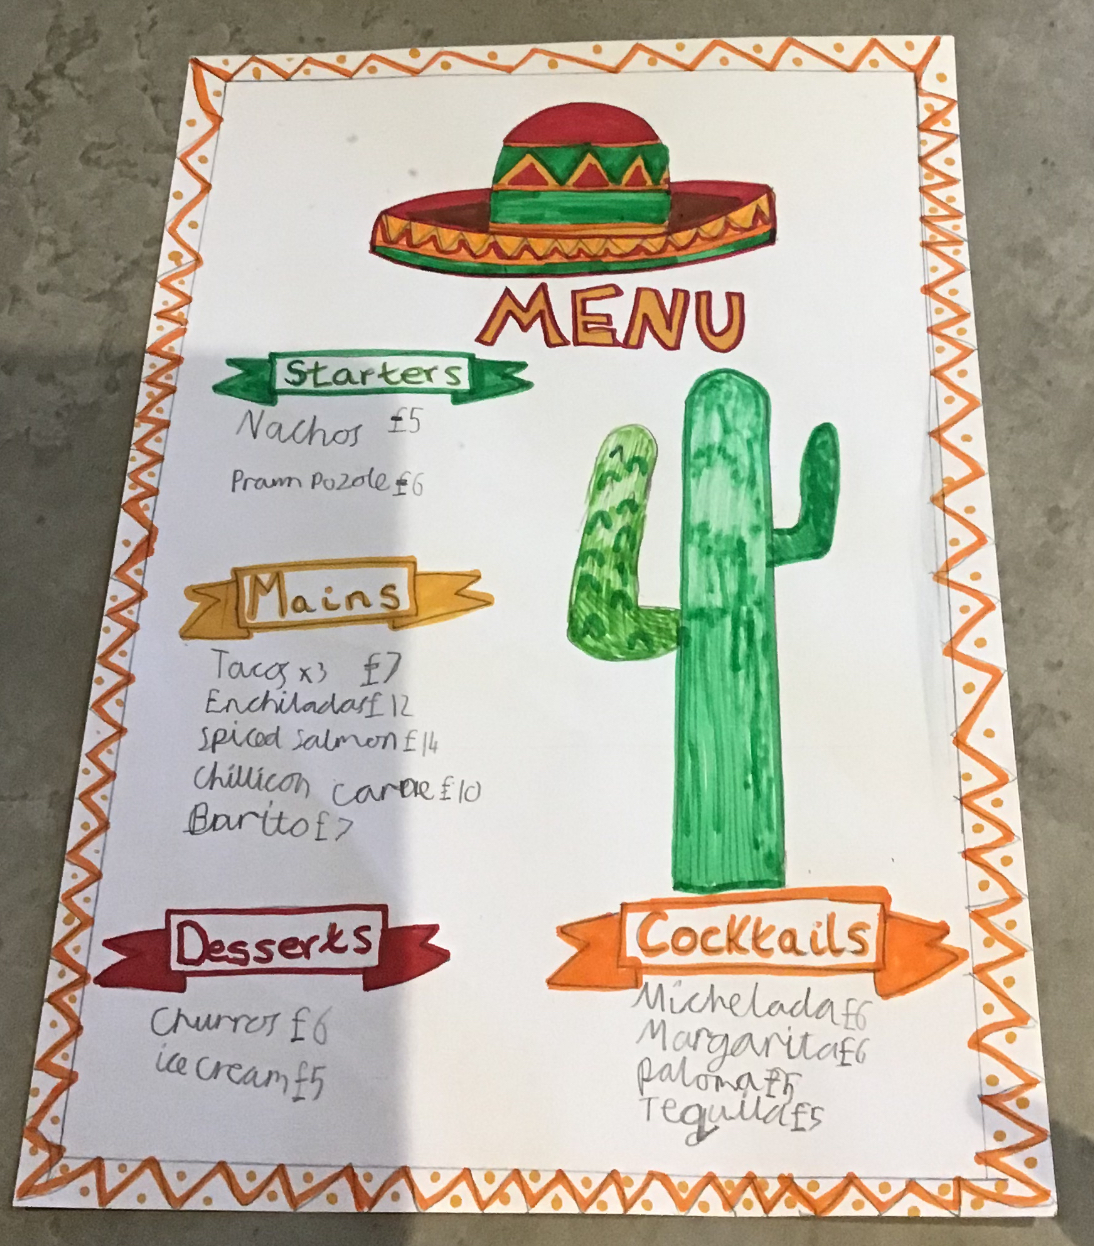 MENU
Starters
Nachos £5
Prawn Pozole £6
Mains
Tacos x3 £7
Enchiladas £12
Spiced Salmon £14
Chillicon Carne £10
Barito £7
Desserts
Churros £6
ice cream £5
Cocktails
Michelada £6
Margarita £6
paloma £5
Tequila £5